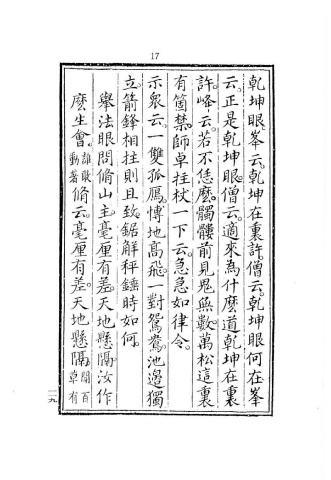 17
乾坤眼峯云乾坤在裏許僧云乾坤眼何在峯
云正是乾坤眼僧云適來為什麼道乾坤在裏
許峰云若不恁麽髑髏前見鬼無數萬松這裏
有箇禁師卓拄杖一下云急急如律令
示衆云一雙孤鴈慱地高飛一對鴛鴦池邊獨
立箭鋒相拄則且致鋸解秤錘時如何
舉法眼問脩山主毫厘有差天地懸隔汝作
麽生會誰敢動著脩云毫厘有差天地懸隔開百草有
一九